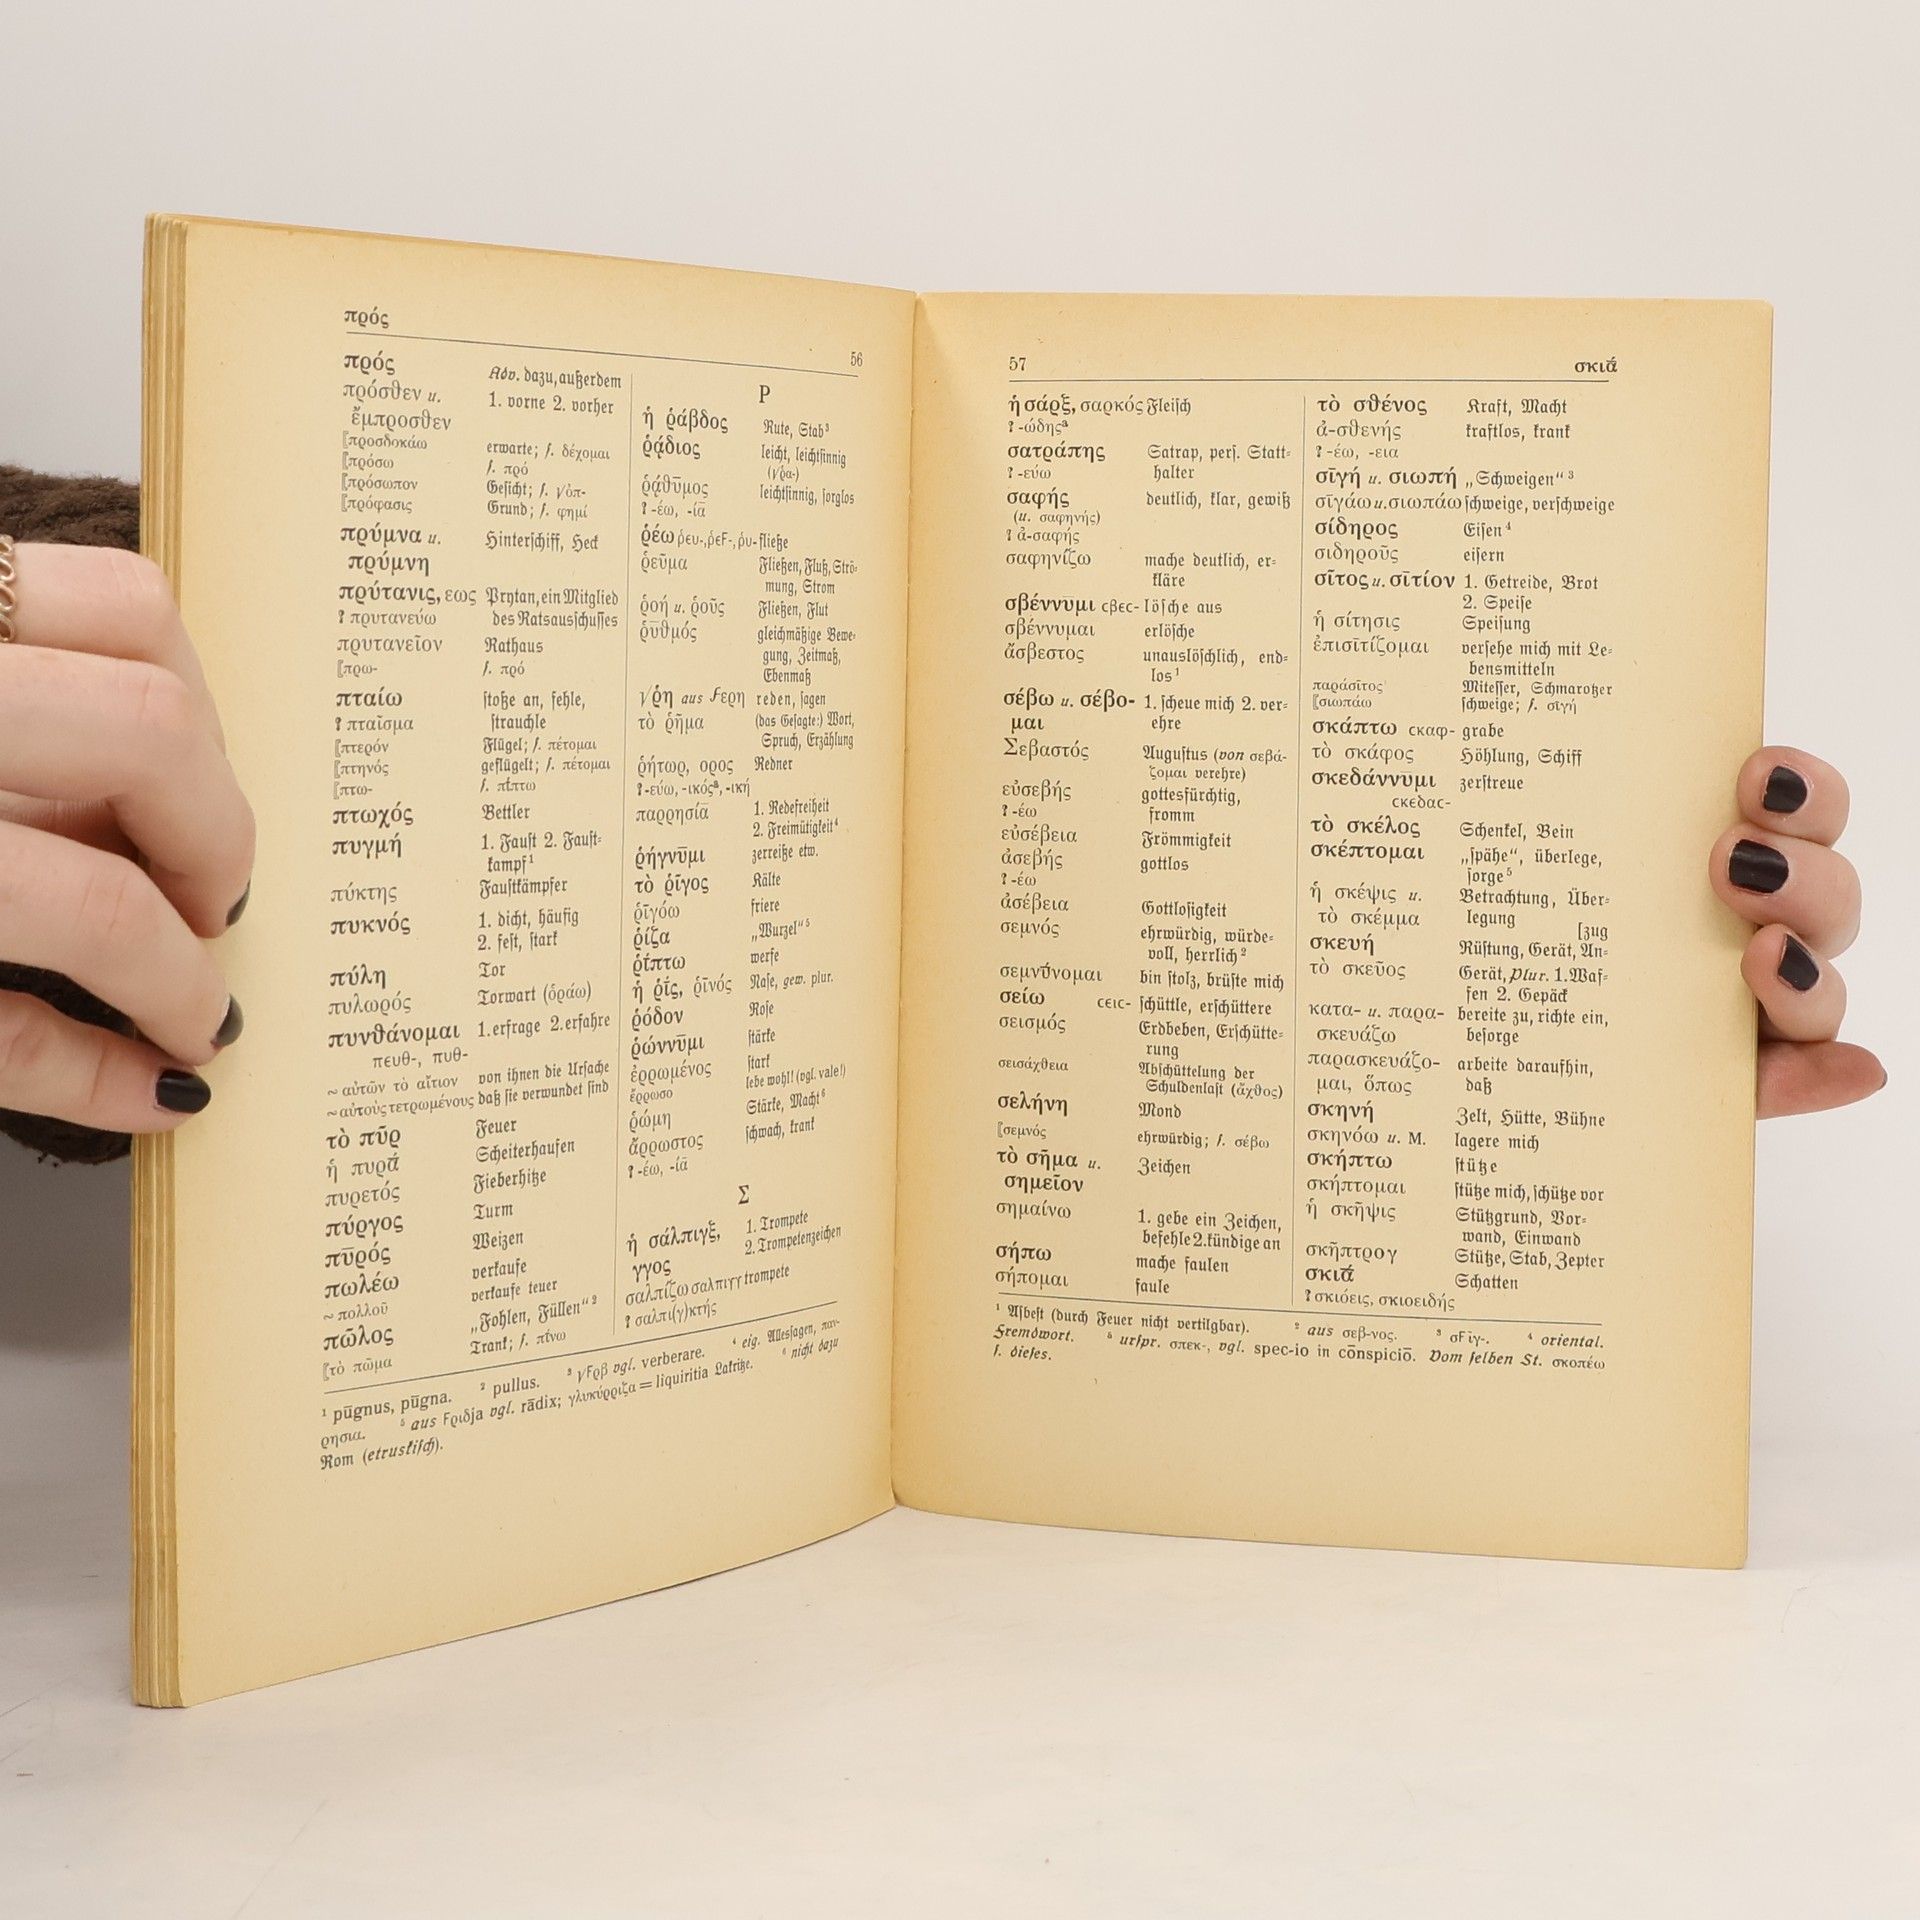 πρός
56
πρός Adv. dazu, außerdem
πρόσθεν u. 1. vorne 2. vorher
ἔμπροσθεν
[προσδοκάω erwarte; s. δέχομαι
[πρόσω s. πρό
[πρόσωπον Gesicht; s. √ὀπ-
[πρόφασις Grund; s. φημί
πρύμνα u. Hinterschiff, Heck
πρύμνη
πρύτανις, εως Prytan, ein Mitglied
? πρυτανεύω des Ratsausschusses
πρυτανεῖον Rathaus
[πρω- s. πρό
πταίω stoße an, fehle,
? πταῖσμα strauchle
[πτερόν Flügel; s. πέτομαι
[πτηνός geflügelt; s. πέτομαι
[πτω- s. πί̄πτω
πτωχός Bettler
πυγμή 1. Faust 2. Faust-
kampf¹
πύκτης Faustkämpfer
πυκνός 1. dicht, häufig
2. fest, stark
πύλη Tor
πυλωρός Torwart (ὁράω)
πυνθάνομαι 1. erfrage 2. erfahre
πευθ-, πυθ-
~ αὐτῶν τὸ αἴτιον von ihnen die Ursache
~ αὐτοὺς τετρωμένους daß sie verwundet sind
τὸ πῦρ Feuer
ἡ πυρᾱ́ Scheiterhaufen
πυρετός Fieberhitze
πύργος Turm
πῡρός Weizen
πωλέω verkaufe
~ πολλοῦ verkaufe teuer
πῶλος „Fohlen, Füllen“²
[τὸ πῶμα Trank; s. πί̄νω
Ρ
ἡ ῥάβδος Rute, Stab³
ῥᾴδιος leicht, leichtsinnig
(√ρα-)
ῥᾴθῡμος leichtsinnig, sorglos
? -έω, -ίᾱ
ῥέω ῥευ-, ῥεϝ-, ῥυ- fließe
ῥεῦμα Fließen, Fluß, Strö-
mung, Strom
ῥοή u. ῥοῦς Fließen, Flut
ῥυθμός gleichmäßige Bewe-
gung, Zeitmaß,
Ebenmaß
√ῥη aus ϝερη reden, sagen
τὸ ῥῆμα (das Gesagte:) Wort,
Spruch, Erzählung
ῥήτωρ, ορος Redner
?-εύω, -ικόςª, -ική
παρρησίᾱ 1. Redefreiheit
2. Freimütigkeit⁴
ῥήγνῡμι zerreiße etw.
τὸ ῥῖγος Kälte
ῥῑγόω friere
ῥίζα „Wurzel“⁵
ῥί̄πτω werfe
ἡ ῥί̄ς, ῥῑνός Nase, gew. plur.
ῥόδον Rose
ῥώννῡμι stärke
ἐρρωμένος stark
ἔρρωσο lebe wohl! (vgl. vale!)
ῥώμη Stärke, Macht⁶
ἄρρωστος schwach, krank
? -έω, -ίᾱ
Σ
ἡ σάλπιγξ, 1. Trompete
γγος 2. Trompetenzeichen
σαλπίζω σαλπιγγ trompete
? σαλπι(γ)κτής
¹ pūgnus, pūgna. ² pullus. ³ √ϝρβ vgl. verberare. ⁴ eig. Allessagen, παν-
ρησια. ⁵ aus ϝριδja vgl. rādix; γλυκύρριζα = liquiritia Lakritze. ⁶ nicht dazu
Rom (etruskisch).
57
σκιᾱ́
ἡ σάρξ, σαρκός Fleisch
? -ώδηςª
σατράπης Satrap, pers. Statt-
? -εύω halter
σαφής deutlich, klar, gewiß
(u. σαφηνής)
? ἀ-σαφής
σαφηνίζω mache deutlich, er-
kläre
σβέννῡμι σβεσ- lösche aus
σβέννυμαι erlösche
ἄσβεστος unauslöschlich, end-
los¹
σέβω u. σέβο- 1. scheue mich 2. ver-
μαι ehre
Σεβαστός Augustus (von σεβά-
ζομαι verehre)
εὐσεβής gottesfürchtig,
? -έω fromm
εὐσέβεια Frömmigkeit
ἀσεβής gottlos
? -έω
ἀσέβεια Gottlosigkeit
σεμνός ehrwürdig, würde-
voll, herrlich²
σεμνύ̄νομαι bin stolz, brüste mich
σείω σεισ- schüttle, erschüttere
σεισμός Erdbeben, Erschütte-
rung
σεισάχθεια Abschüttelung der
Schuldenlast (ἄχθος)
σελήνη Mond
[σεμνός ehrwürdig; s. σέβω
τὸ σῆμα u. Zeichen
σημεῖον
σημαίνω 1. gebe ein Zeichen,
befehle 2. kündige an
σήπω mache faulen
σήπομαι faule
τὸ σθένος Kraft, Macht
ἀ-σθενής kraftlos, krank
? -έω, -εια
σῑγή u. σιωπή „Schweigen“³
σῑγάω u. σιωπάω schweige, verschweige
σίδηρος Eisen⁴
σιδηροῦς eisern
σῖτος u. σῑτίον 1. Getreide, Brot
2. Speise
ἡ σίτησις Speisung
ἐπισῑτίζομαι versehe mich mit Le-
bensmitteln
παράσῑτος Mitesser, Schmarotzer
[σιωπάω schweige; s. σῑγή
σκάπτω σκαφ- grabe
τὸ σκάφος Höhlung, Schiff
σκεδάννυμι zerstreue
σκεδασ-
τὸ σκέλος Schenkel, Bein
σκέπτομαι „spähe“, überlege,
sorge⁵
ἡ σκέψις u. Betrachtung, Über-
τὸ σκέμμα legung [zug
σκευή Rüstung, Gerät, An-
τὸ σκεῦος Gerät, plur. 1. Waf-
fen 2. Gepäck
κατα- u. παρα- bereite zu, richte ein,
σκευάζω besorge
παρασκευάζο- arbeite daraufhin,
μαι, ὅπως daß
σκηνή Zelt, Hütte, Bühne
σκηνόω u. M. lagere mich
σκήπτω stütze
σκήπτομαι stütze mich, schütze vor
ἡ σκῆψις Stützgrund, Vor-
wand, Einwand
σκῆπτρογ Stütze, Stab, Zepter
σκιᾱ́ Schatten
? σκιόεις, σκιοειδής
¹ Asbest (durch Feuer nicht vertilgbar). ² aus σεβ-νος. ³ σϝιγ-. ⁴ oriental.
Fremdwort. ⁵ urspr. σπεκ-, vgl. spec-io in cōnspiciō. Vom selben St. σκοπέω
s. dieses.